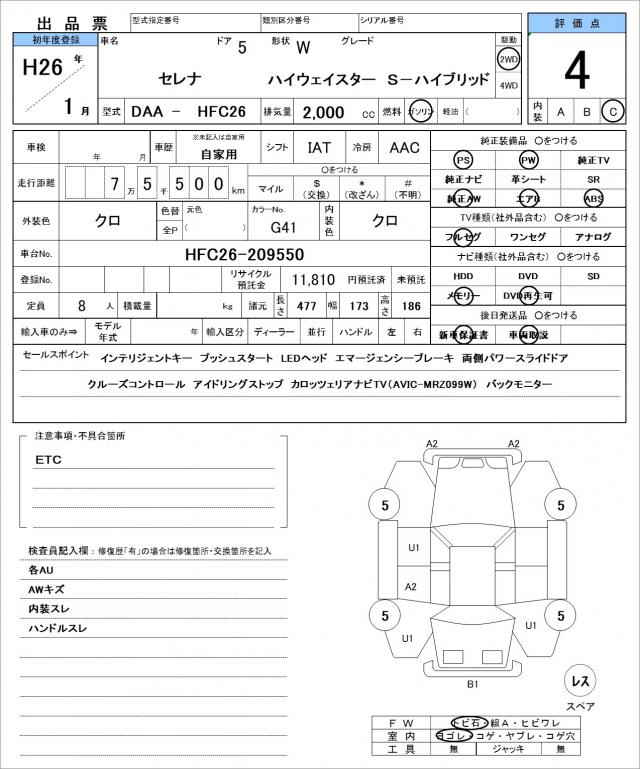 出品票 型式指定番号 類別区分番号 シリアル番号
評価点
初年度登録 車名 ドア 5 形状 W グレード 駆動
H26 年 セレナ ハイウェイスター S-ハイブリッド 2WD
4WD
4
1 月 型式 DAA - HFC26 排気量 2,000 cc 燃料 ガソリン 軽油 ( ) 内装 A B C
車検 年 月 車歴 ※未記入は自家用 自家用 シフト IAT 冷房 AAC
純正装備品 〇をつける
PS PW 純正TV
走行距離 7 万 5 千 5 0 0 km マイル 〇をつける $ (交換) * (改ざん) # (不明)
純正ナビ 革シート SR
純正AW エアB ABS
外装色 クロ 色替 元色 全P ( ) カラーNo. G41 内装色 クロ
TV種類(社外品含む) 〇をつける
フルセグ ワンセグ アナログ
車台No. HFC26-209550
ナビ種類(社外品含む) 〇をつける
登録No. リサイクル預託金 11,810 円預託済 未預託
HDD DVD SD
定員 8 人 積載量 kg 諸元 長さ 477 幅 173 高さ 186
メモリー DVD再生可
後日発送品 〇をつける
輸入車のみ⇒ モデル年式 年 輸入区分 ディーラー 並行 ハンドル 左 右
新車保証書 車両取説
セールスポイント インテリジェントキー プッシュスタート LEDヘッド エマージェンシーブレーキ 両側パワースライドドア
クルーズコントロール アイドリングストップ カロッツェリアナビTV(AVIC-MRZ099W) バックモニター
注意事項・不具合箇所
ETC
検査員記入欄:修復歴「有」の場合は修復箇所・交換箇所を記入
各AU
AWキズ
内装スレ
ハンドルスレ
A2 A2
5 5
U1
A2
5 5
U1 U1
B1
レス
スペア
FW トビ石・線A・ヒビワレ
室内 ヨゴレ・コゲ・ヤブレ・コゲ穴
工具 無 ジャッキ 無